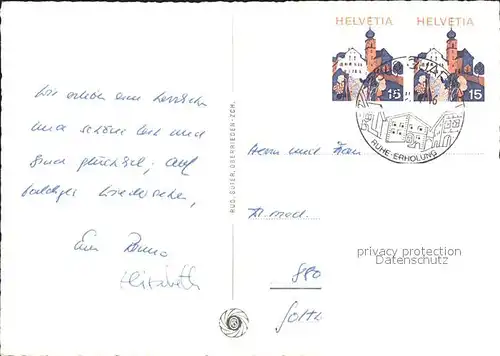 HELVETIA HELVETIA
15 15
RUHE-ERHOLUNG
Wir erleben eine herrliche
und schöne Zeit und
sind glücklich; auf
baldiges Wiedersehen,
Euer Bruno
Elisabeth
RUD. SUTER, OBERRIEDEN-ZCH.
Herrn und Frau
Dr. med.
880
privacy protection
Datenschutz